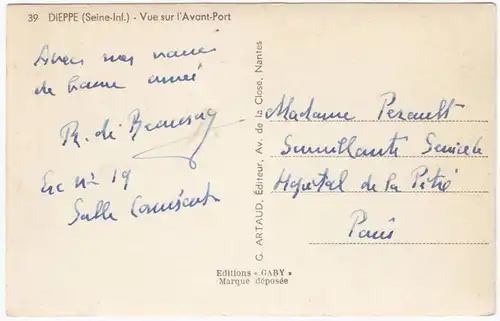 39 DIEPPE (Seine-Inf.) - Vue sur l'Avant-Port
Avec mes vœux
de bonne année
R. de Beaunay
Esc nº 19
Salle
G. ARTAUD, Éditeur, Av. de la Close, Nantes
Madame Perault
Surveillante Générale
Hôpital de la Pitié
Paris
Editions « GABY »
Marque déposée